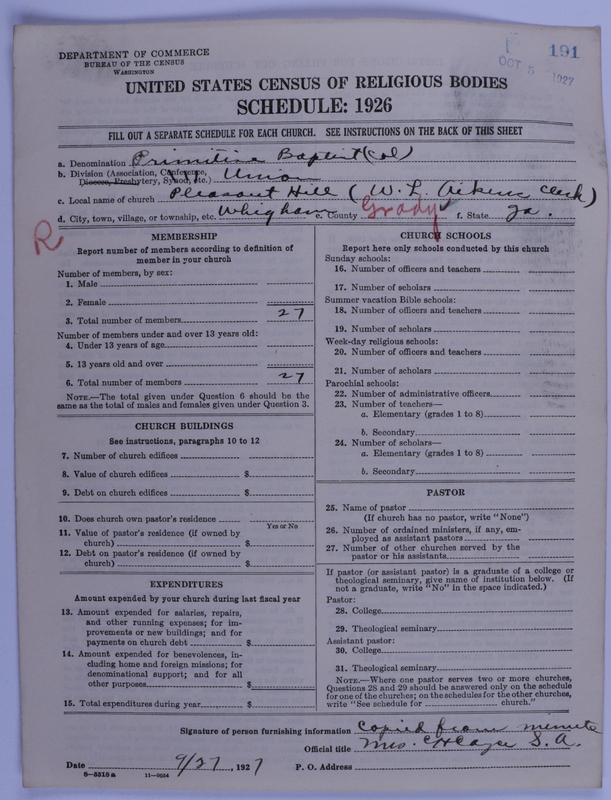 191
OCT 5 1927
DEPARTMENT OF COMMERCE
BUREAU OF THE CENSUS
WASHINGTON
UNITED STATES CENSUS OF RELIGIOUS BODIES
SCHEDULE: 1926
FILL OUT A SEPARATE SCHEDULE FOR EACH CHURCH. SEE INSTRUCTIONS ON THE BACK OF THIS SHEET
a. Denomination Primitive Baptist (Col)
b. Division (Association, Conference, Diocese, Presbytery, Synod, etc.) Union
c. Local name of church Pleasant Hill (W. L. Clerk)
d. City, town, village, or township, etc. Whigham e. County Grady f. State Ga.
R
MEMBERSHIP
Report number of members according to definition of
member in your church
Number of members, by sex:
1. Male
2. Female
3. Total number of members 27
Number of members under and over 13 years old:
4. Under 13 years of age
5. 13 years old and over
6. Total number of members 27
NOTE.—The total given under Question 6 should be
same as the total of males and females given under Question 3.
CHURCH BUILDINGS
See instructions, paragraphs 10 to 12
7. Number of church edifices
8. Value of church edifices $
9. Debt on church edifices $
10. Does church own pastor's residence
Yes or No
11. Value of pastor's residence (if owned by
church) $
12. Debt on pastor's residence (if owned by
church) $
EXPENDITURES
Amount expended by your church during last fiscal year
13. Amount expended for salaries, repairs,
and other running expenses; for im-
provements or new buildings; and for
payments on church debt $
14. Amount expended for benevolences, in-
cluding home and foreign missions; for
denominational support; and for all
other purposes $
15. Total expenditures during year $
CHURCH SCHOOLS
Report here only schools conducted by this church
Sunday schools:
16. Number of officers and teachers
17. Number of scholars
Summer vacation Bible schools:
18. Number of officers and teachers
19. Number of scholars
Week-day religious schools:
20. Number of officers and teachers
21. Number of scholars
Parochial schools:
22. Number of administrative officers
23. Number of teachers—
a. Elementary (grades 1 to 8)
b. Secondary
24. Number of scholars—
a. Elementary (grades 1 to 8)
b. Secondary
PASTOR
25. Name of pastor
(If church has no pastor, write "None")
26. Number of ordained ministers, if any, em-
ployed as assistant pastors
27. Number of other churches served by the
pastor or his assistants
If pastor (or assistant pastor) is a graduate of a college or
theological seminary, give name of institution below. (If
not a graduate, write "No" in the space indicated.)
Pastor:
28. College
29. Theological seminary
Assistant pastor:
30. College
31. Theological seminary
NOTE.—Where one pastor serves two or more churches,
Questions 28 and 29 should be answered only on the schedule
for one of the churches; on the schedules for the other churches,
write "See schedule for church."
Signature of person furnishing information Copied from minute
Official title Mrs. S. A.
Date 9/27, 1927 P. O. Address
8—5318a 11—9034